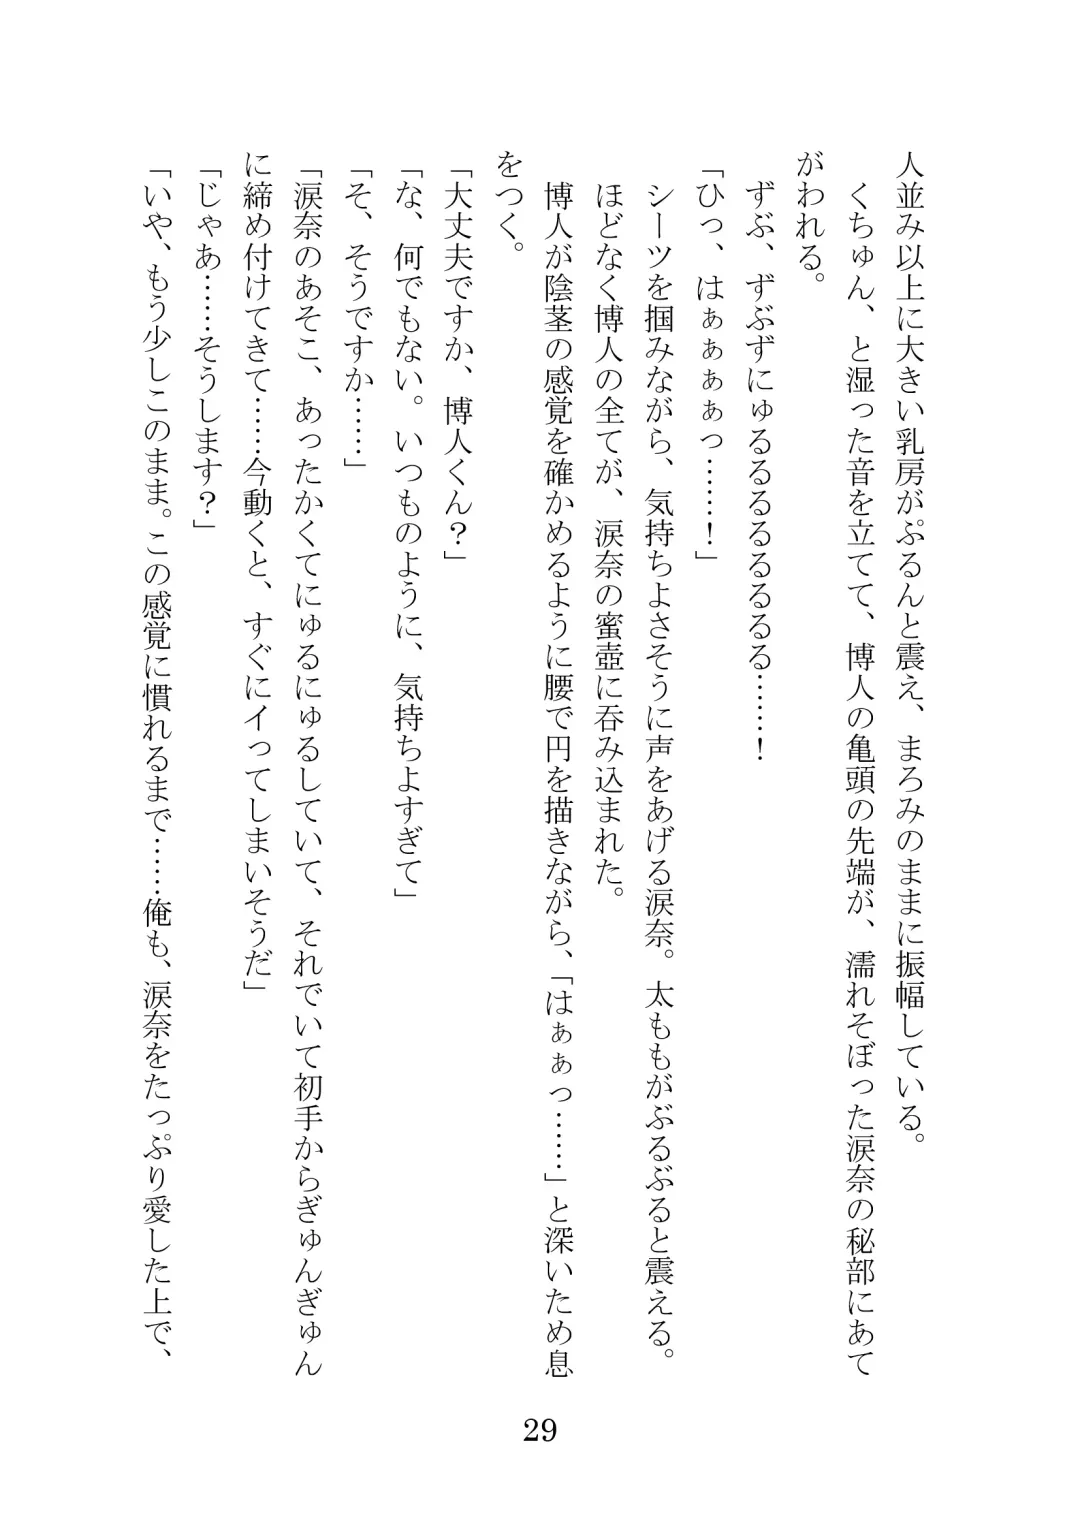 人並み以上に大きい乳房がぷるんと震え、まろみのままに振幅している。
くちゅん、と湿った音を立てて、博人の亀頭の先端が、濡れそぼった涙奈の秘部にあて
がわれる。
ずぶ、ずぶずにゅるるるるるるるる……！
「ひっ、はぁぁぁぁっ……！」
シーツを掴みながら、気持ちよさそうに声をあげる涙奈。太ももがぶるぶると震える。
ほどなく博人の全てが、涙奈の蜜壺に呑み込まれた。
博人が陰茎の感覚を確かめるように腰で円を描きながら、「はぁぁっ……」と深いため息
をつく。
「大丈夫ですか、博人くん？」
「な、何でもない。いつものように、気持ちよすぎて」
「そ、そうですか……」
「涙奈のあそこ、あったかくてにゅるにゅるしていて、それでいて初手からぎゅんぎゅん
に締め付けてきて……今動くと、すぐにイってしまいそうだ」
「じゃあ……そうします？」
「いや、もう少しこのまま。この感覚に慣れるまで……俺も、涙奈をたっぷり愛した上で、
29